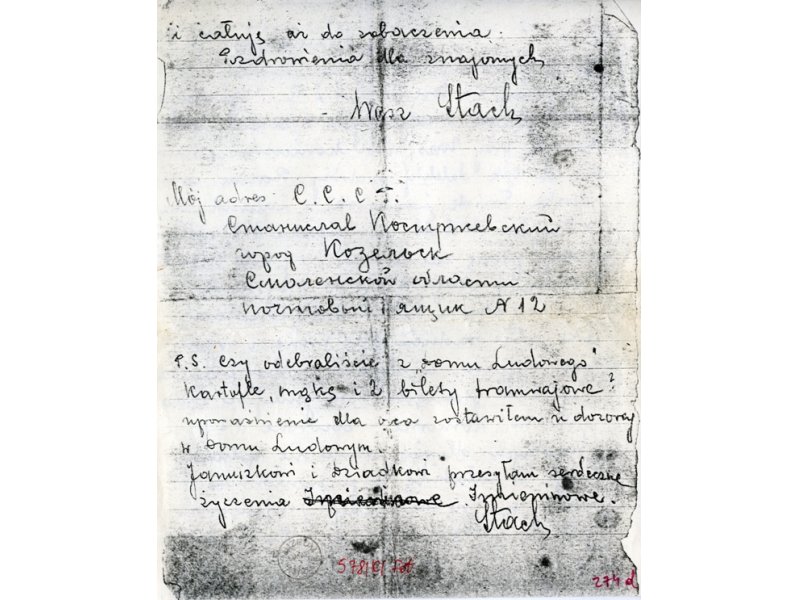 i całuję aż do zobaczenia.
Pozdrowienia dla znajomych
Wasz Stach
Mój adres C.C.C.P.
Станислав Костржевский
город Козельск
Смоленской области
почтовый ящик N 12
P.S. Czy odebraliście z „Domu Ludowego"
kartofle, mąkę i 2 bilety tramwajowe?
upoważnienie dla ojca zostawiłem u dozorcy
w Domu Ludowym.
Januszkowi i Dziadkowi przesyłam serdeczne
życzenia Imieninowe.
Stach
578/C/
274 d